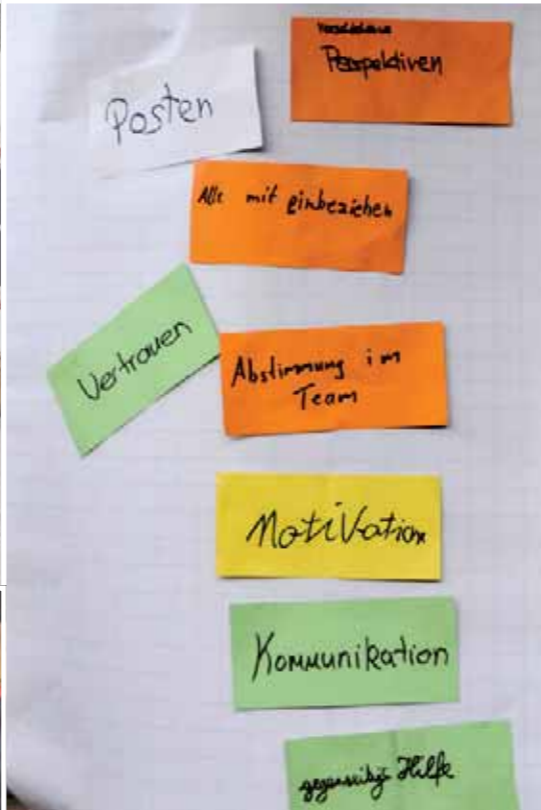 verschiedene
Perspektiven
Posten
Alle mit einbeziehen
Vertrauen
Abstimmung im
Team
Motivation
Kommunikation
gegenseitige Hilfe